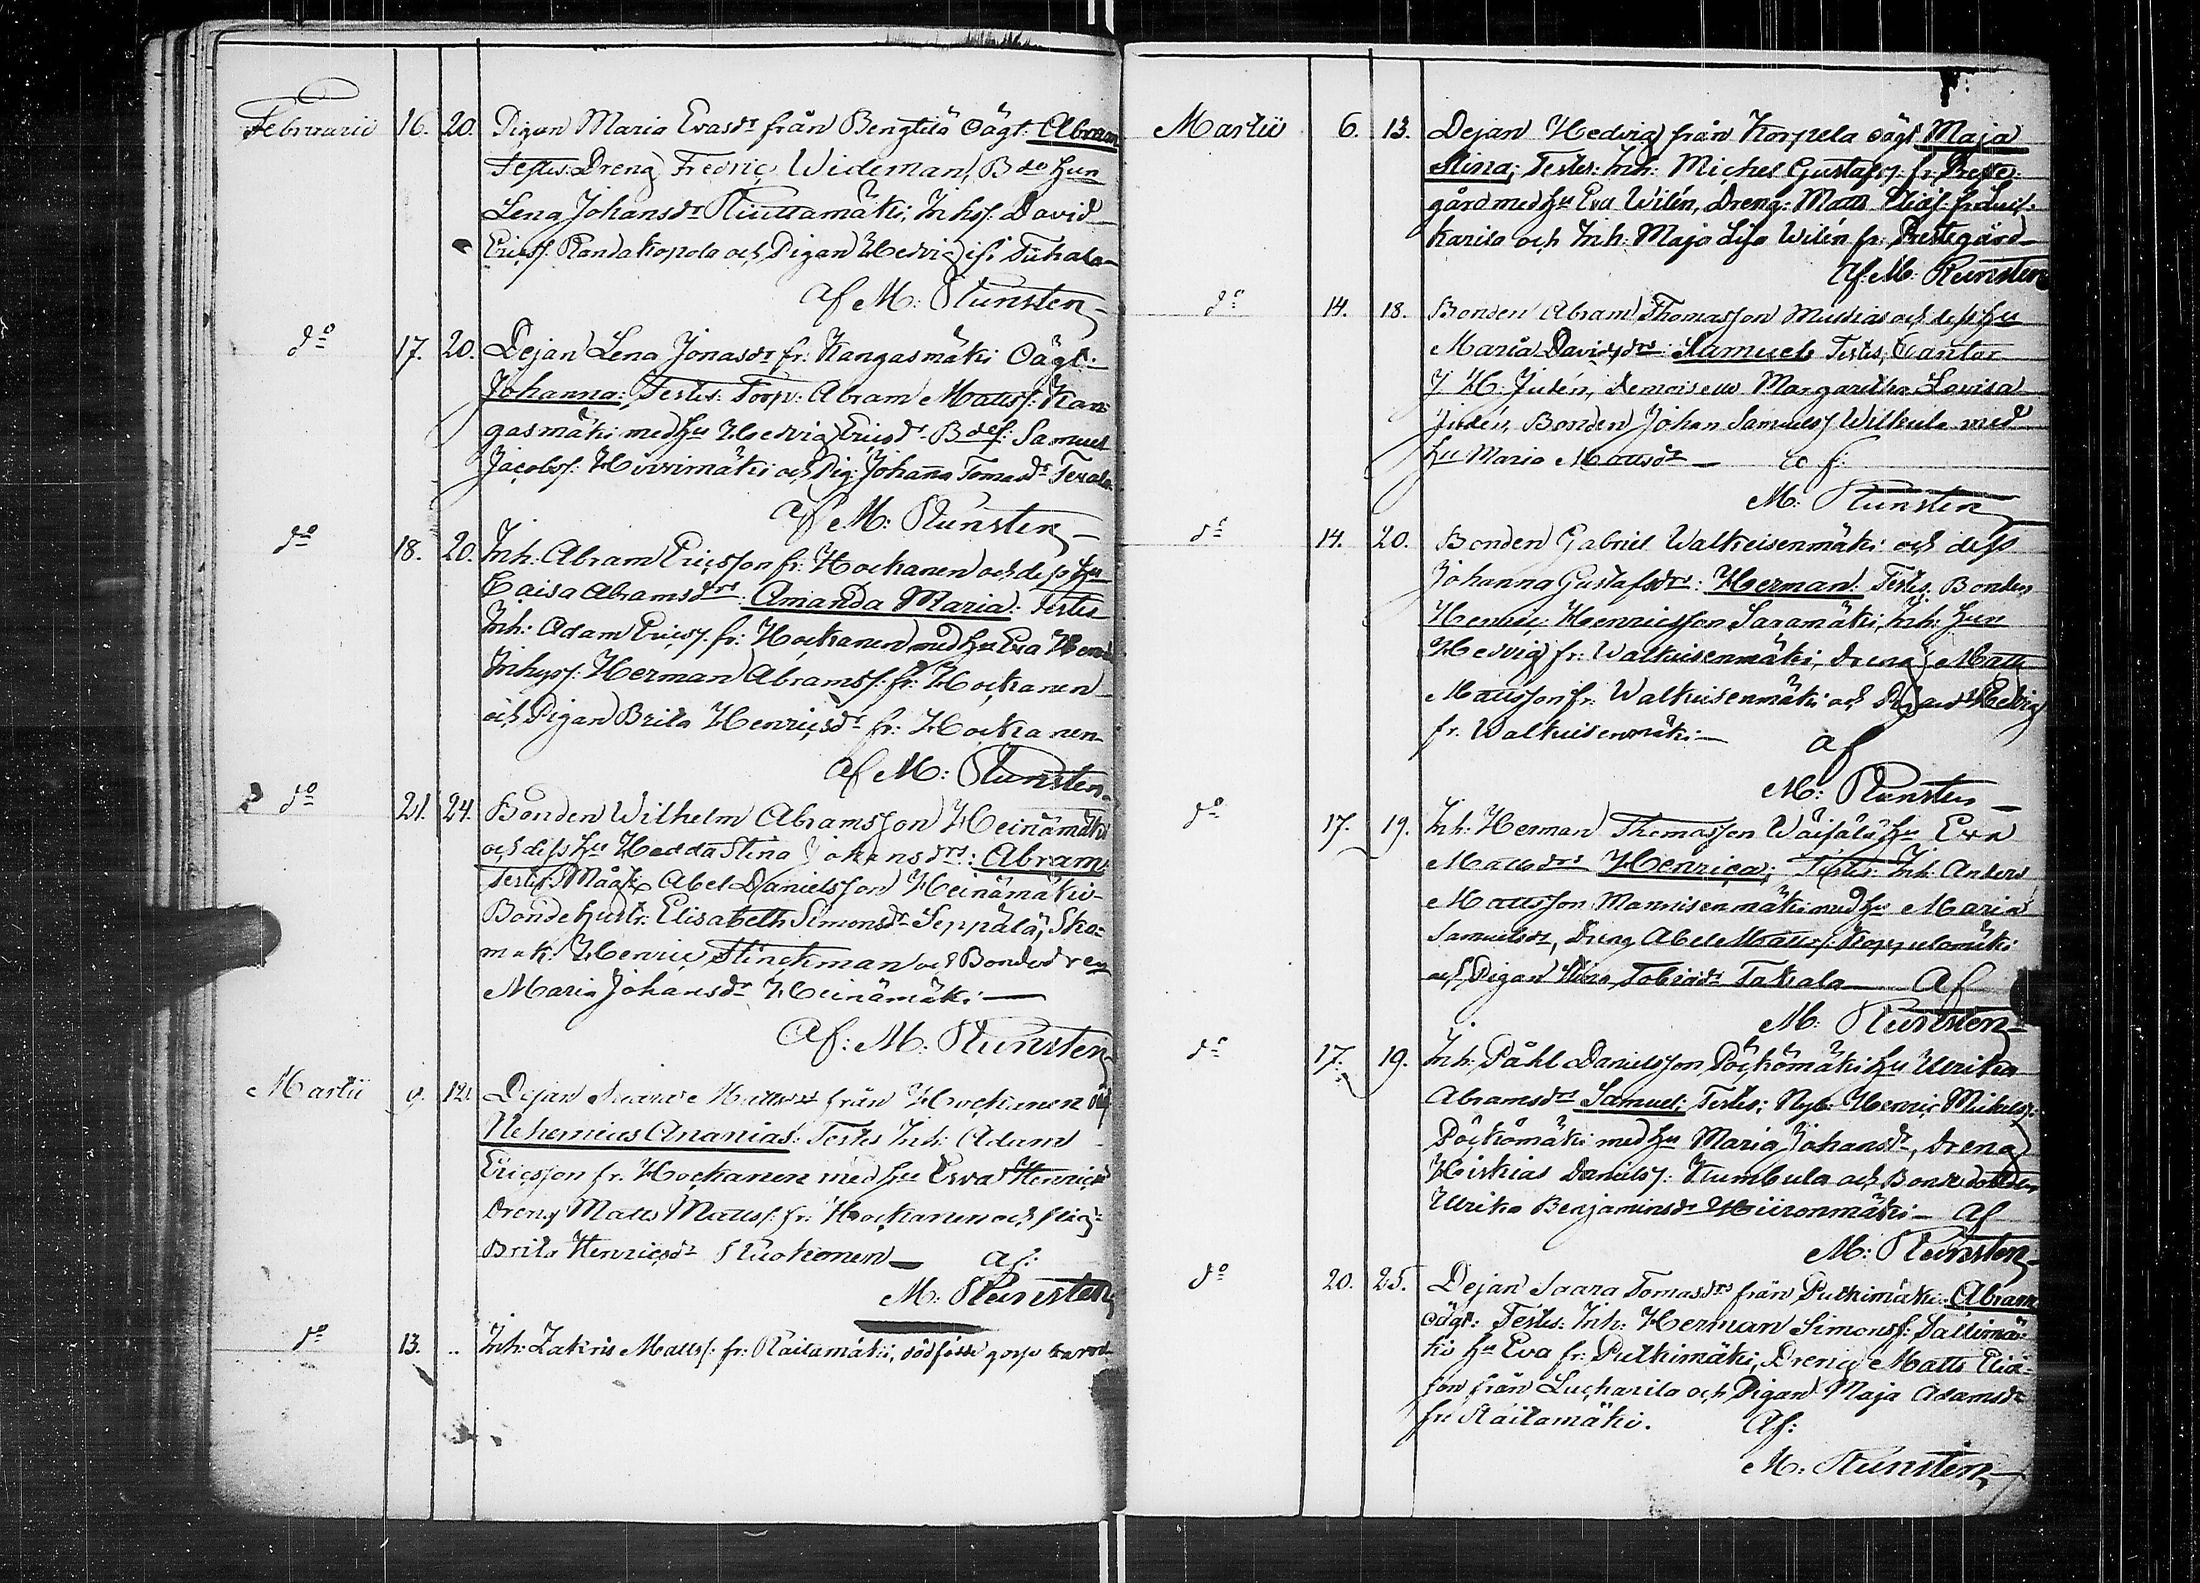 Februarii 16. 20. Pigan Maria Evasdr från Bengtilä Oägt: Abram
Testes: Dreng Fredric Wideman, Bde Hun
Lena Johansdr Kiuttamäki, Inhsf. David
Ericss: Randakopola och Pigan Hedvig ifr Tuhala
Af M: Runsten
do 17. 20. Dejan Lena Jonasdr fr: Kangasmäki Oägt:
Johanna: Testes: Torp: Abram Matts: Kan-
gasmäki med Hu Hedvig Ericsdr Bdes: Samuel
Jacobs: Hirsimäki och Pig: Johanna Tomasdr
Af M: Runsten
do 18. 20. Inh: Abram Ericsson fr: Hockanen och dess Hu
Caisa Abramsdr: Amanda Maria: Testes
Inh: Adam Erics: fr: Hockanen med Hu Eva
Inhyss: Herman Abramss: fr: Hockanen
och Pigan Brita Henricsdr fr: Hockanen
af M: Runsten
do 21. 24. Bonden Wilhelm Abramsson Heinämäki
och dess Hu Hedda Stina Johansdrs: Abram
Testes: Måg Abel Danielsson Heinämäki
Bondehustr: Elisabeth Simonsdr Seppälä, Sko-
mak: Henric Flinckman och Bonded
Maria Johansdr Heinämäki
Af: M: Runsten
Martii 9. 12. Dejan Mattsdr från Hockanen
Nehemias Ananias: Testes Inh: Adam
Ericsson fr: Hockanen med Hu Eva Henricsd
Dreng Matts Matts: fr: Hockanen och
Brita Henricsdr af:
M: Runsten
do 13. .. Inh: Zakris Matts: fr: Raitamäki, dödfödd gosse
Martii 6. 13. Dejan Hedvig från Korpela oägt Maja
Stina; Testes: Inh: Michel Gustafs: fr: Preste-
gård med Hu Eva Wilén, Dreng: Matts Elias: fr:
karila och Inh: Maja Lisa Wilén fr: Prestegård
Af: M: Runsten
do 14. 18. Bonden Abram Thomasson och dess Hu
Maria Davidsdrs: Samuel Testes; Cantor
J. H. Judén, Demoiselle Margaretha Lovisa
Judén, Bonden Johan Samuels: Wilkula med
Hu Maria Mattsdr af:
M: Runsten
do 14. 20. Bonden Gabriel Walkeisenmäki och dess
Johanna Gustafsdrs: Herman: Testes: Bonden
Henric Henricsson Saramäki, Inh: Hun
Hedvig fr: Walkeisenmäki, Dreng Matts
Mattsson fr: Walkeisenmäki och Pigan Hedvig
fr. Walkeisenmäki af
M: Runsten
do 17. 19. Inh: Herman Thomasson Wäisälä Hu Eva
Mattsdrs Henrica; Testes: Inh: Anders
Mattsson Mannisenmäki med Hu Maria
Samuelsdr, Dreng Abel Matts: Koppelomäki
och Pigan Stina Tobiasdr Takala Af
M: Runsten
do 17. 19. Inh: Påhl Danielsson Pöckömäki Hu Ulrika
Abramsdrs Samuel; Testes; Nyb: Henric Mikels:
Pöckömäki med Hu Maria Johansdr, Dreng
Heiskias Daniels: Kumbula och Bonde dottren
Ulrika Benjaminsdr Hiironmäki Af
M: Runsten
do 20. 25. Dejan Saara Tomasdrs från Pulkimäki Abram
oägt: Testes: Inh: Herman Simonss: Pallimä-
ki Hu Eva fr: Pulkimäki, Dreng Matts Elia-
son från Luckarila och Pigan Maja Adamsdr
fr: Raitamäki. Af:
M: Runsten